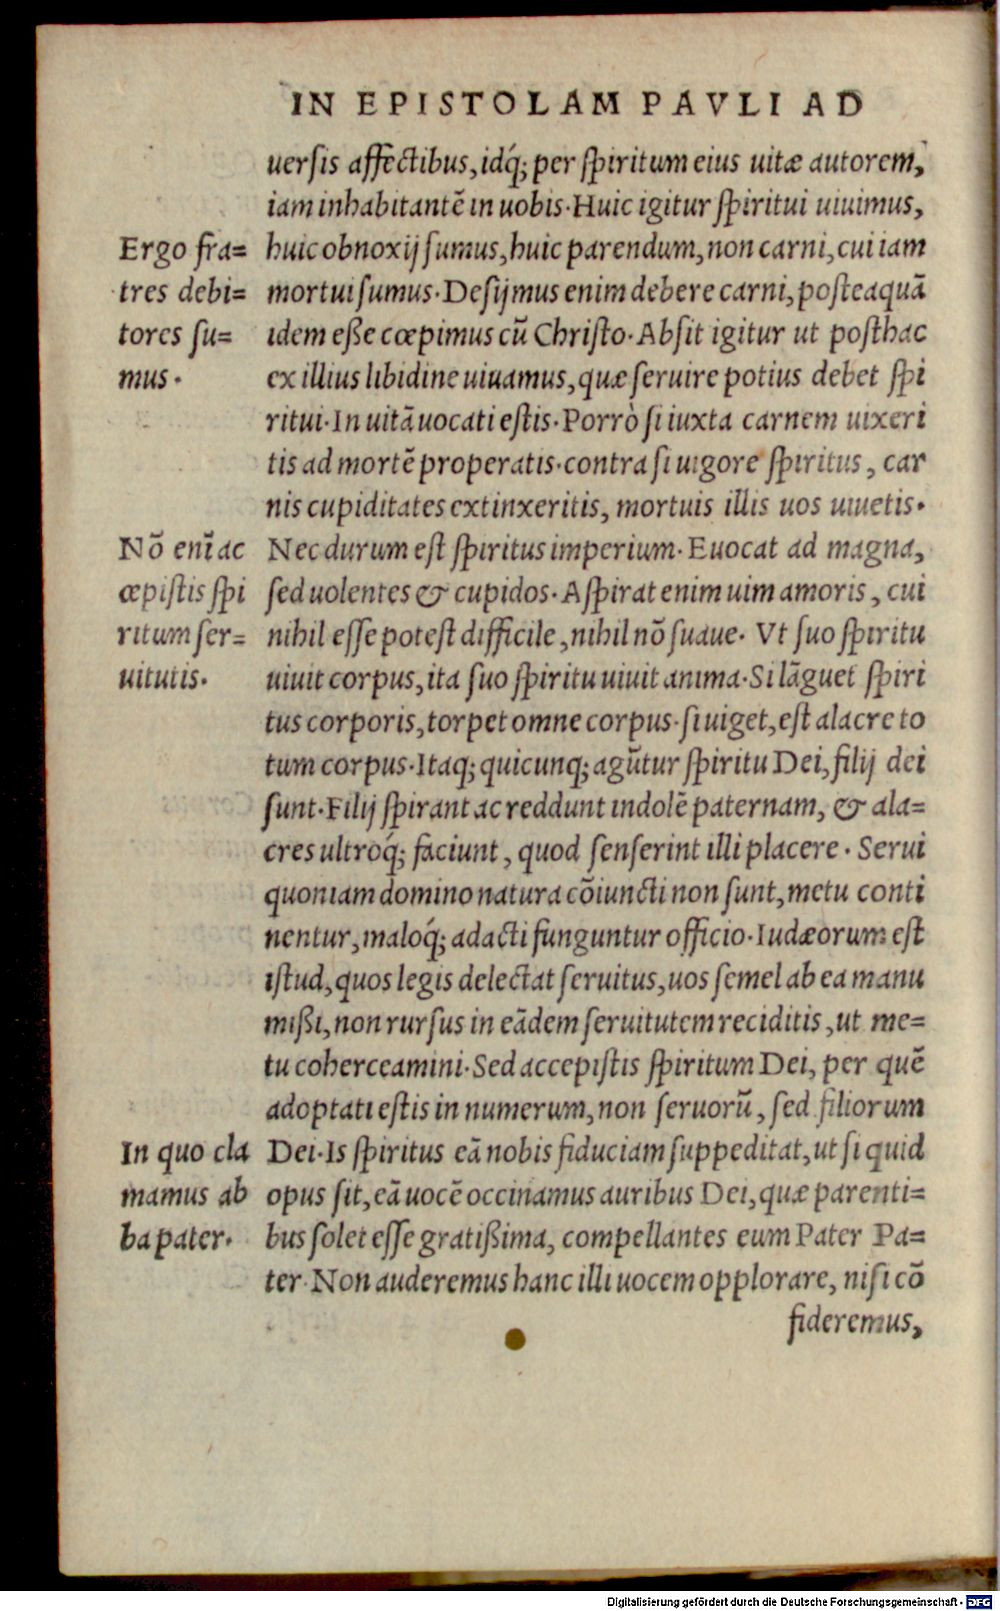 IN EPISTOLAM PAVLI AD
uersis affectibus, idq́; per spiritum eius uitæ autorem,
iam inhabitantẽ in uobis. Huic igitur spiritui uiuimus,
Ergo fra=
huic obnoxij sumus, huic parendum, non carni, cui iam
tres debi=
mortui sumus. Desijmus enim debere carni, posteaquã
tores su=
idem eße cœpimus cũ Christo. Absit igitur ut posthac
mus.
ex illius libidine uiuamus, quæ seruire potius debet spi
ritui. In uitã uocati estis. Porrò si iuxta carnem uixeri
tis ad mortẽ properatis. contra si uigore spiritus, car
nis cupiditates extinxeritis, mortuis illis uos uiuetis.
Nõ enĩ ac
Nec durum est spiritus imperium. Euocat ad magna,
cœpistis spi
sed uolentes & cupidos. Aspirat enim uim amoris, cui
ritum ser=
nihil esse potest difficile, nihil nõ suaue. Vt suo spiritu
uitutis.
uiuit corpus, ita suo spiritu uiuit anima. Si lãguet spiri
tus corporis, torpet omne corpus. si uiget, est alacre to
tum corpus. Itaq; quicunq; agũtur spiritu Dei, filij dei
sunt. Filij spirant ac reddunt indolẽ paternam, & ala=
cres ultroq́; faciunt, quod senserint illi placere. Serui
quoniam domino natura cõiuncti non sunt, metu conti
nentur, maloq́; adacti funguntur officio. Iudæorum est
istud, quos legis delectat seruitus, uos semel ab ea manu
mißi, non rursus in eãdem seruitutem reciditis, ut me=
tu coherceamini. Sed accepistis spiritum Dei, per quẽ
adoptati estis in numerum, non seruorũ, sed filiorum
In quo cla
Dei. Is spiritus eã nobis fiduciam suppeditat, ut si quid
mamus ab
opus sit, eã uocẽ occinamus auribus Dei, quæ parenti=
ba pater.
bus solet esse gratißima, compellantes eum Pater Pa=
ter. Non auderemus hanc illi uocem opplorare, nisi cõ
fideremus,
Digitalisierung gefördert durch die Deutsche Forschungsgemeinschaft - DFG